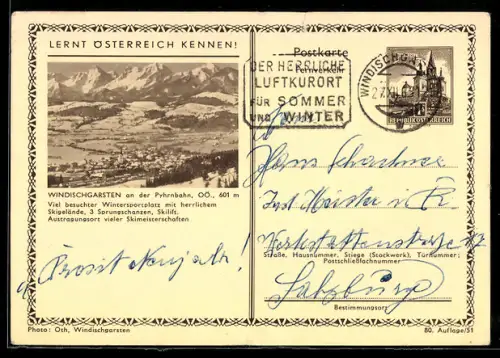 LERNT ÖSTERREICH KENNEN!
WINDISCHGARSTEN an der Pyhrnbahn, OÖ., 601 m
Viel besuchter Wintersportplatz mit herrlichem
Skigelände, 3 Sprungschanzen, Skilift.
Austragungsort vieler Skimeisterschaften
Prosit Neujahr!
Photo: Oth, Windischgarsten
Postkarte
Fernverkehr
DER HERRLICHE
LUFTKURORT
FÜR SOMMER
UND WINTER
WINDISCHGA
27.XII
REPUBLIK ÖSTERREICH
Herrn
Hans
Inst. Meister i. R.
Werkstättenstrasse 17
Straße, Hausnummer, Stiege (Stockwerk), Türnummer;
Postschließfachnummer
Salzburg
Bestimmungsort
80. Auflage/51